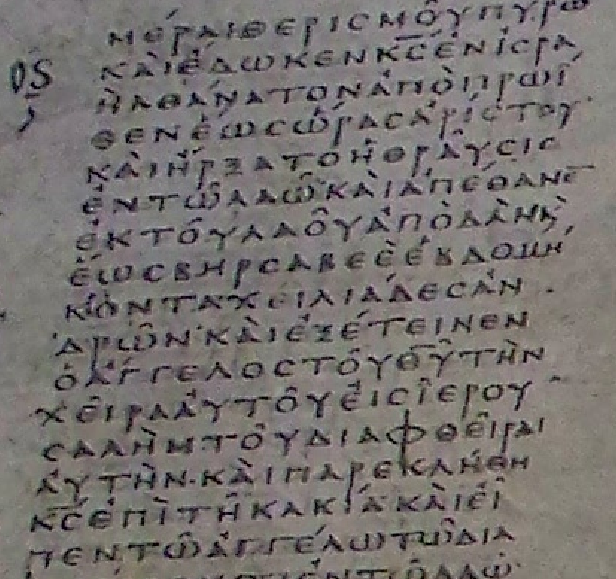 ΟϚ
ΜΕΡΑΙΘΕΡΙϹΜΟΥΠΥΡΩ
ΚΑΙΕΔΩΚΕΝΚ̅Ϲ̅ΕΝΙϹΡΑ
ΗΛΘΑΝΑΤΟΝΑΠΟΠΡΩΙ
ΘΕΝΕΩϹΩΡΑϹΑΡΙϹΤΟΥ
ΚΑΙΗΡΞΑΤΟΗΘΡΑΥϹΙϹ
ΕΝΤΩΛΑΩΚΑΙΑΠΕΘΑΝΕ̅
ΕΚΤΟΥΛΑΟΥΑΠΟΔΑΝϗ
ΕΩϹΒΗΡϹΑΒΕΕΕΒΔΟΜΗ
ΚΟΝΤΑΧΕΙΛΙΑΔΕϹΑΝ
ΔΡΩΝ·ΚΑΙΕΞΕΤΕΙΝΕΝ
ΟΑΓΓΕΛΟϹΤΟΥΘ̅Υ̅ΤΗΝ
ΧΕΙΡΑΑΥΤΟΥΕΙϹΙΕΡΟΥ
ϹΑΛΗΜΤΟΥΔΙΑΦΘΕΙΡΑΙ
ΑΥΤΗΝ·ΚΑΙΠΑΡΕΚΛΗΘΗ
Κ̅Ϲ̅ΕΠΙΤΗΚΑΚΙΑΚΑΙΕΙ
ΠΕΝΤΩΑΓΓΕΛΩΤΩΔΙΑ